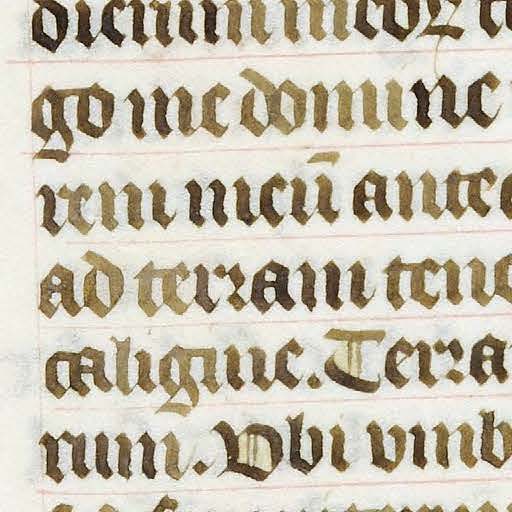 dierum meoꝝ
go me domine
rem meū ante
ad terram tene
caligine. Terra
rum. Vbi vmb